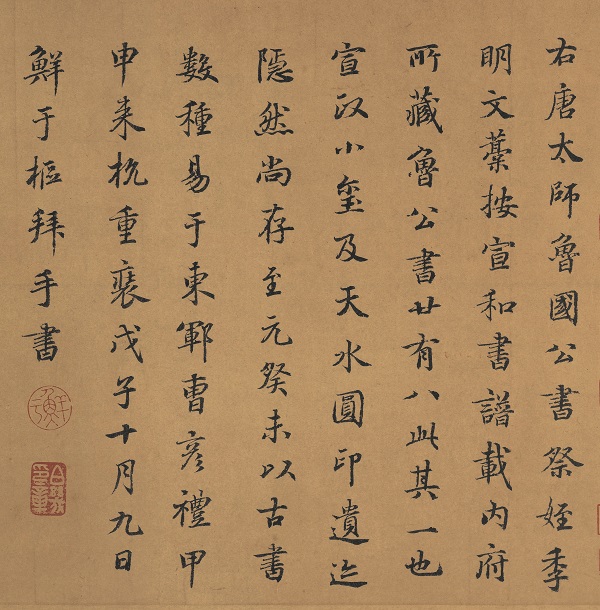 右唐太師魯國公書祭姪季
明文藁按宣和書譜載內府
所藏魯公書廿有八此其一也
宣政小璽及天水圓印遺迹
隱然尚存至元癸未以古書
數種易于東鄆曹彦禮甲
申来杭重裝戊子十月九日
鮮于樞拜手書
鮮于